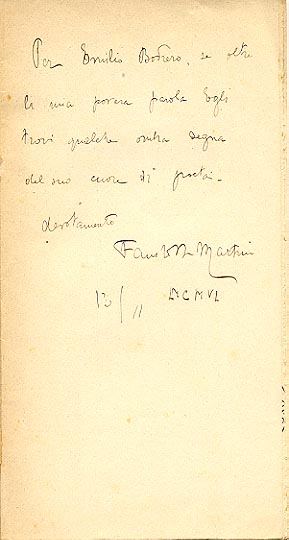 Per Emilio Bodrero, se oltre
la mia povera parola Egli
trovi qualche ombra degna
del suo cuore di poeta -
devotamente
Fausto M. Martini
MCMVI